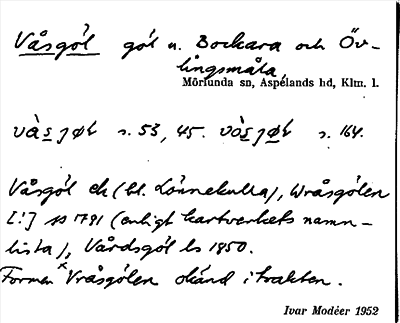 Våsgöl göl n. Bockara och Öv-
lingsmåla
Mörlunda sn, Aspelands hd, Klm. l.
vå̀s̲jø̲t s. 53, 45. vò̀s̲jø̲t s. 164.
Våsgöl ek (bl. Lönnekulla), Wråsgölen
[!] ss 1791 (enligt kartverkets namn-
lista), Vårdsgöl ls 1850.
Formen ˣVråsgölen okänd i trakten.
Ivar Modéer 1952